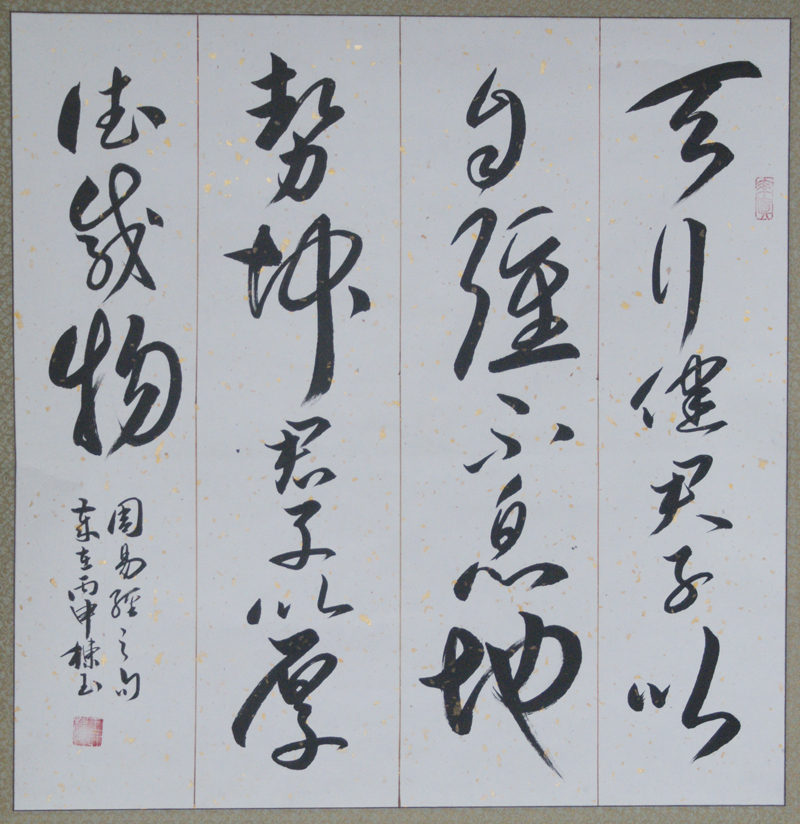 天行健君子以
自强不息地
势坤君子以厚
德载物
周易經之句
歲在丙申棟玉